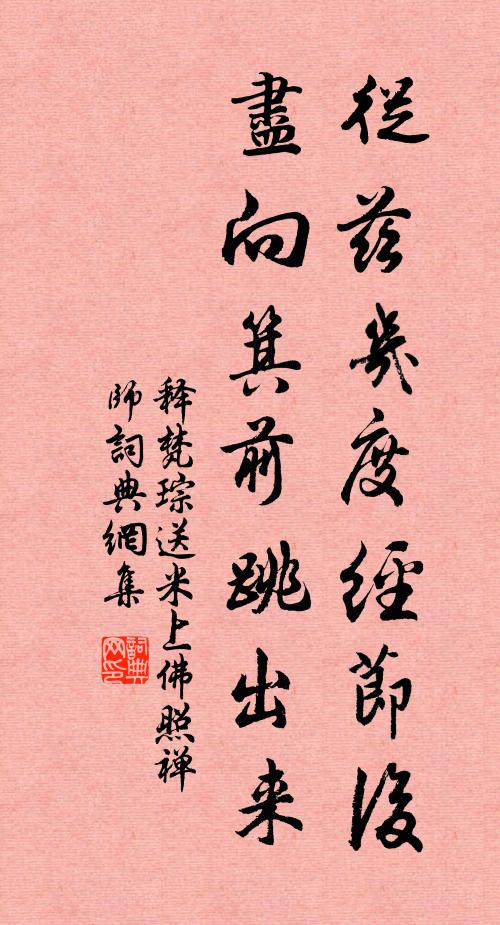 從茲幾度經莭後
盡向箕前跳出来
释梵琮送米上佛照禅
師詞典網集
詞典
网印